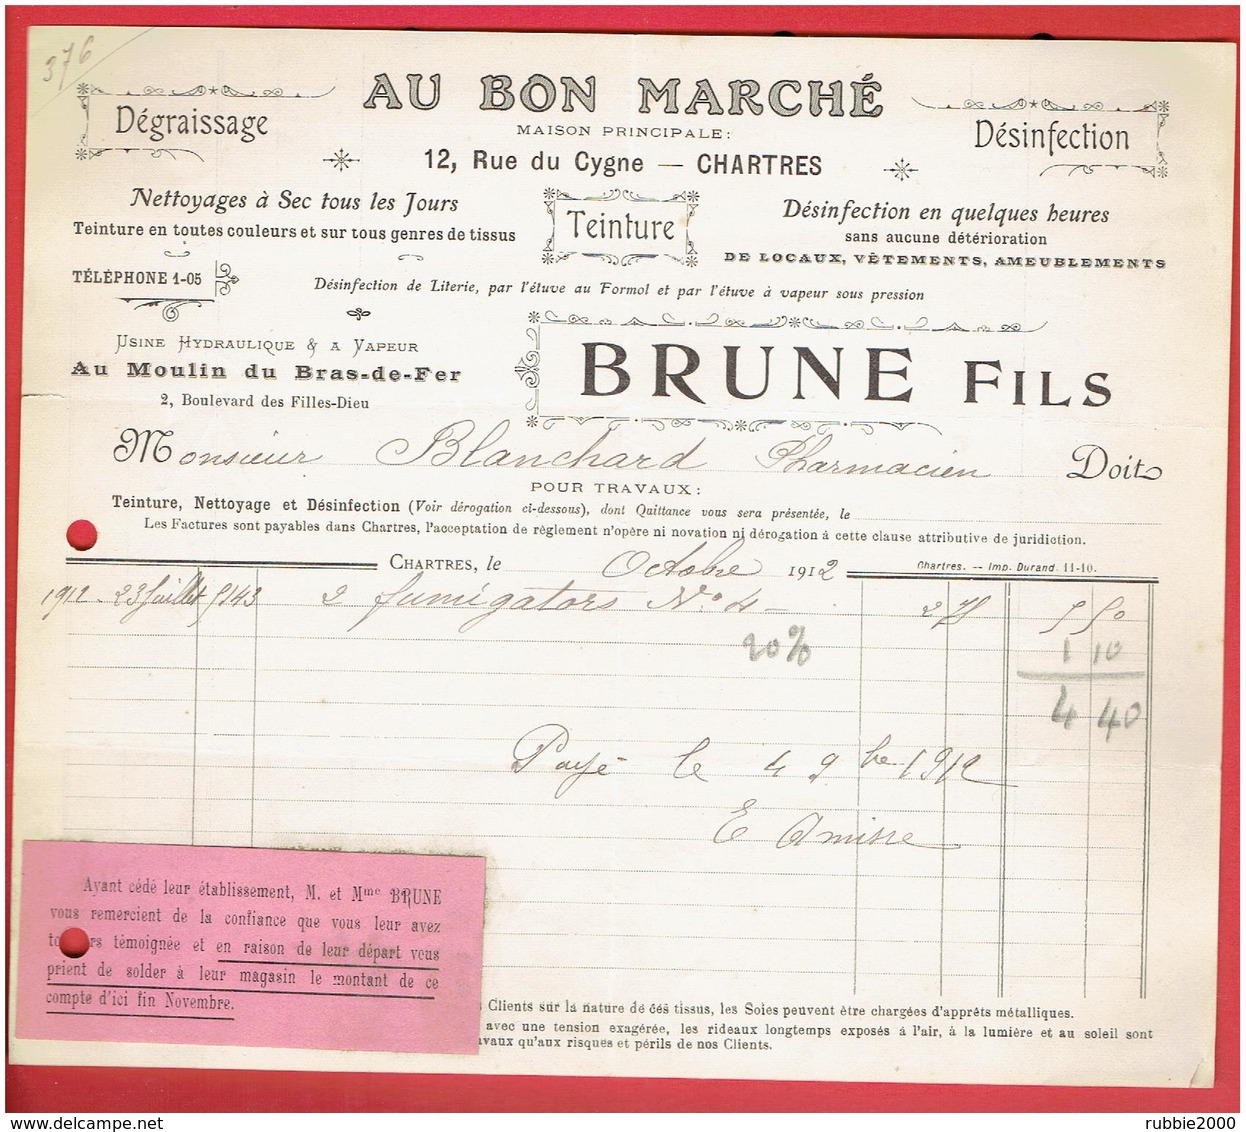 376
AU BON MARCHÉ
Dégraissage
Désinfection
MAISON PRINCIPALE:
12, Rue du Cygne — CHARTRES
Nettoyages à Sec tous les Jours
Teinture en toutes couleurs et sur tous genres de tissus
Teinture
Désinfection en quelques heures
sans aucune détérioration
DE LOCAUX, VÊTEMENTS, AMEUBLEMENTS
TÉLÉPHONE 1-05
Désinfection de Literie, par l'étuve au Formol et par l'étuve à vapeur sous pression
USINE HYDRAULIQUE & A VAPEUR
Au Moulin du Bras-de-Fer
2, Boulevard des Filles-Dieu
BRUNE FILS
Monsieur Blanchard Pharmacien Doit
POUR TRAVAUX:
Teinture, Nettoyage et Désinfection (Voir dérogation ci-dessous), dont Quittance vous sera présentée, le
Les Factures sont payables dans Chartres, l'acceptation de règlement n'opère ni novation ni dérogation à cette clause attributive de juridiction.
CHARTRES, le Octobre 1912
Chartres. -- Imp. Durand. 11-10.
1912 - 23 Juillet 5143 2 fumigators No 4 - 2 75 5 50
20% 1 10
4 40
Payé le 4 9bre 1912
E
Ayant cédé leur établissement, M. et Mme BRUNE
vous remercient de la confiance que vous leur avez
témoignée et en raison de leur départ vous
prient de solder à leur magasin le montant de ce
compte d'ici fin Novembre.
Clients sur la nature de ces tissus, les Soies peuvent être chargées d'apprêts métalliques.
avec une tension exagérée, les rideaux longtemps exposés à l'air, à la lumière et au soleil sont
qu'aux risques et périls de nos Clients.
www.delcampe.net
rubbie2000